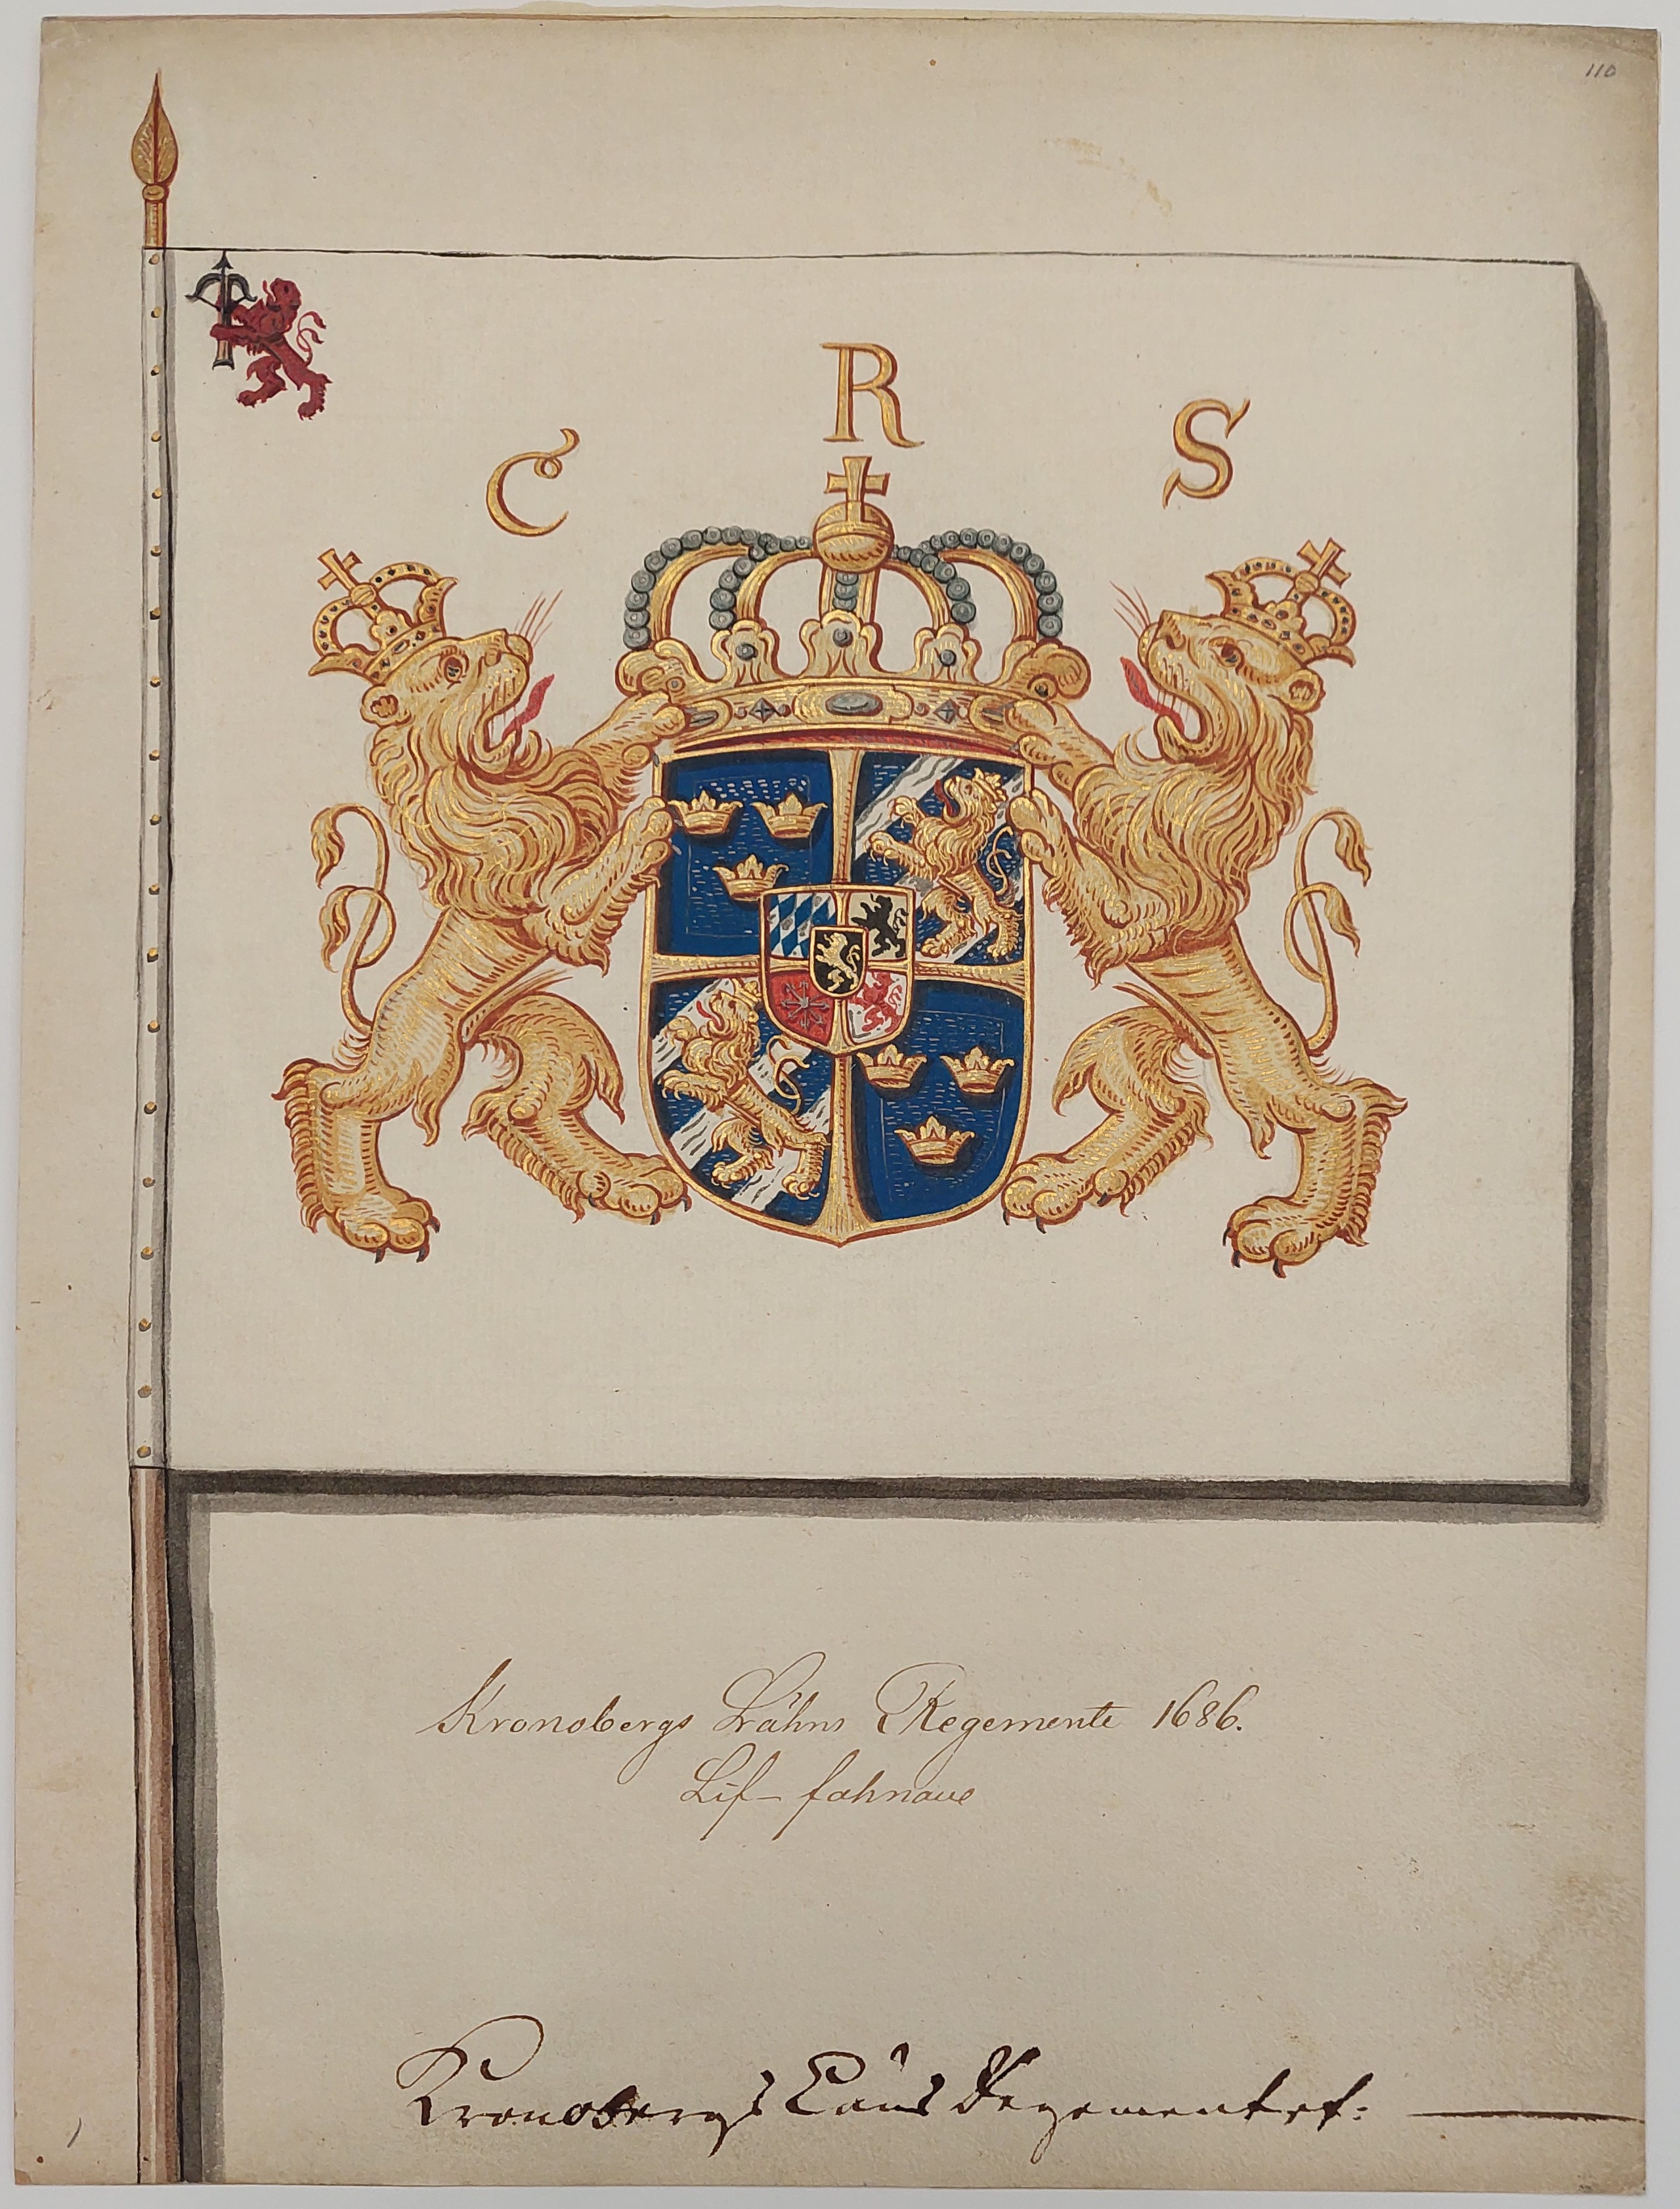 110
C R S
Kronobergs Lähns Regemente 1686.
Lif-fahnane
Kronobergs Läns Regementet: